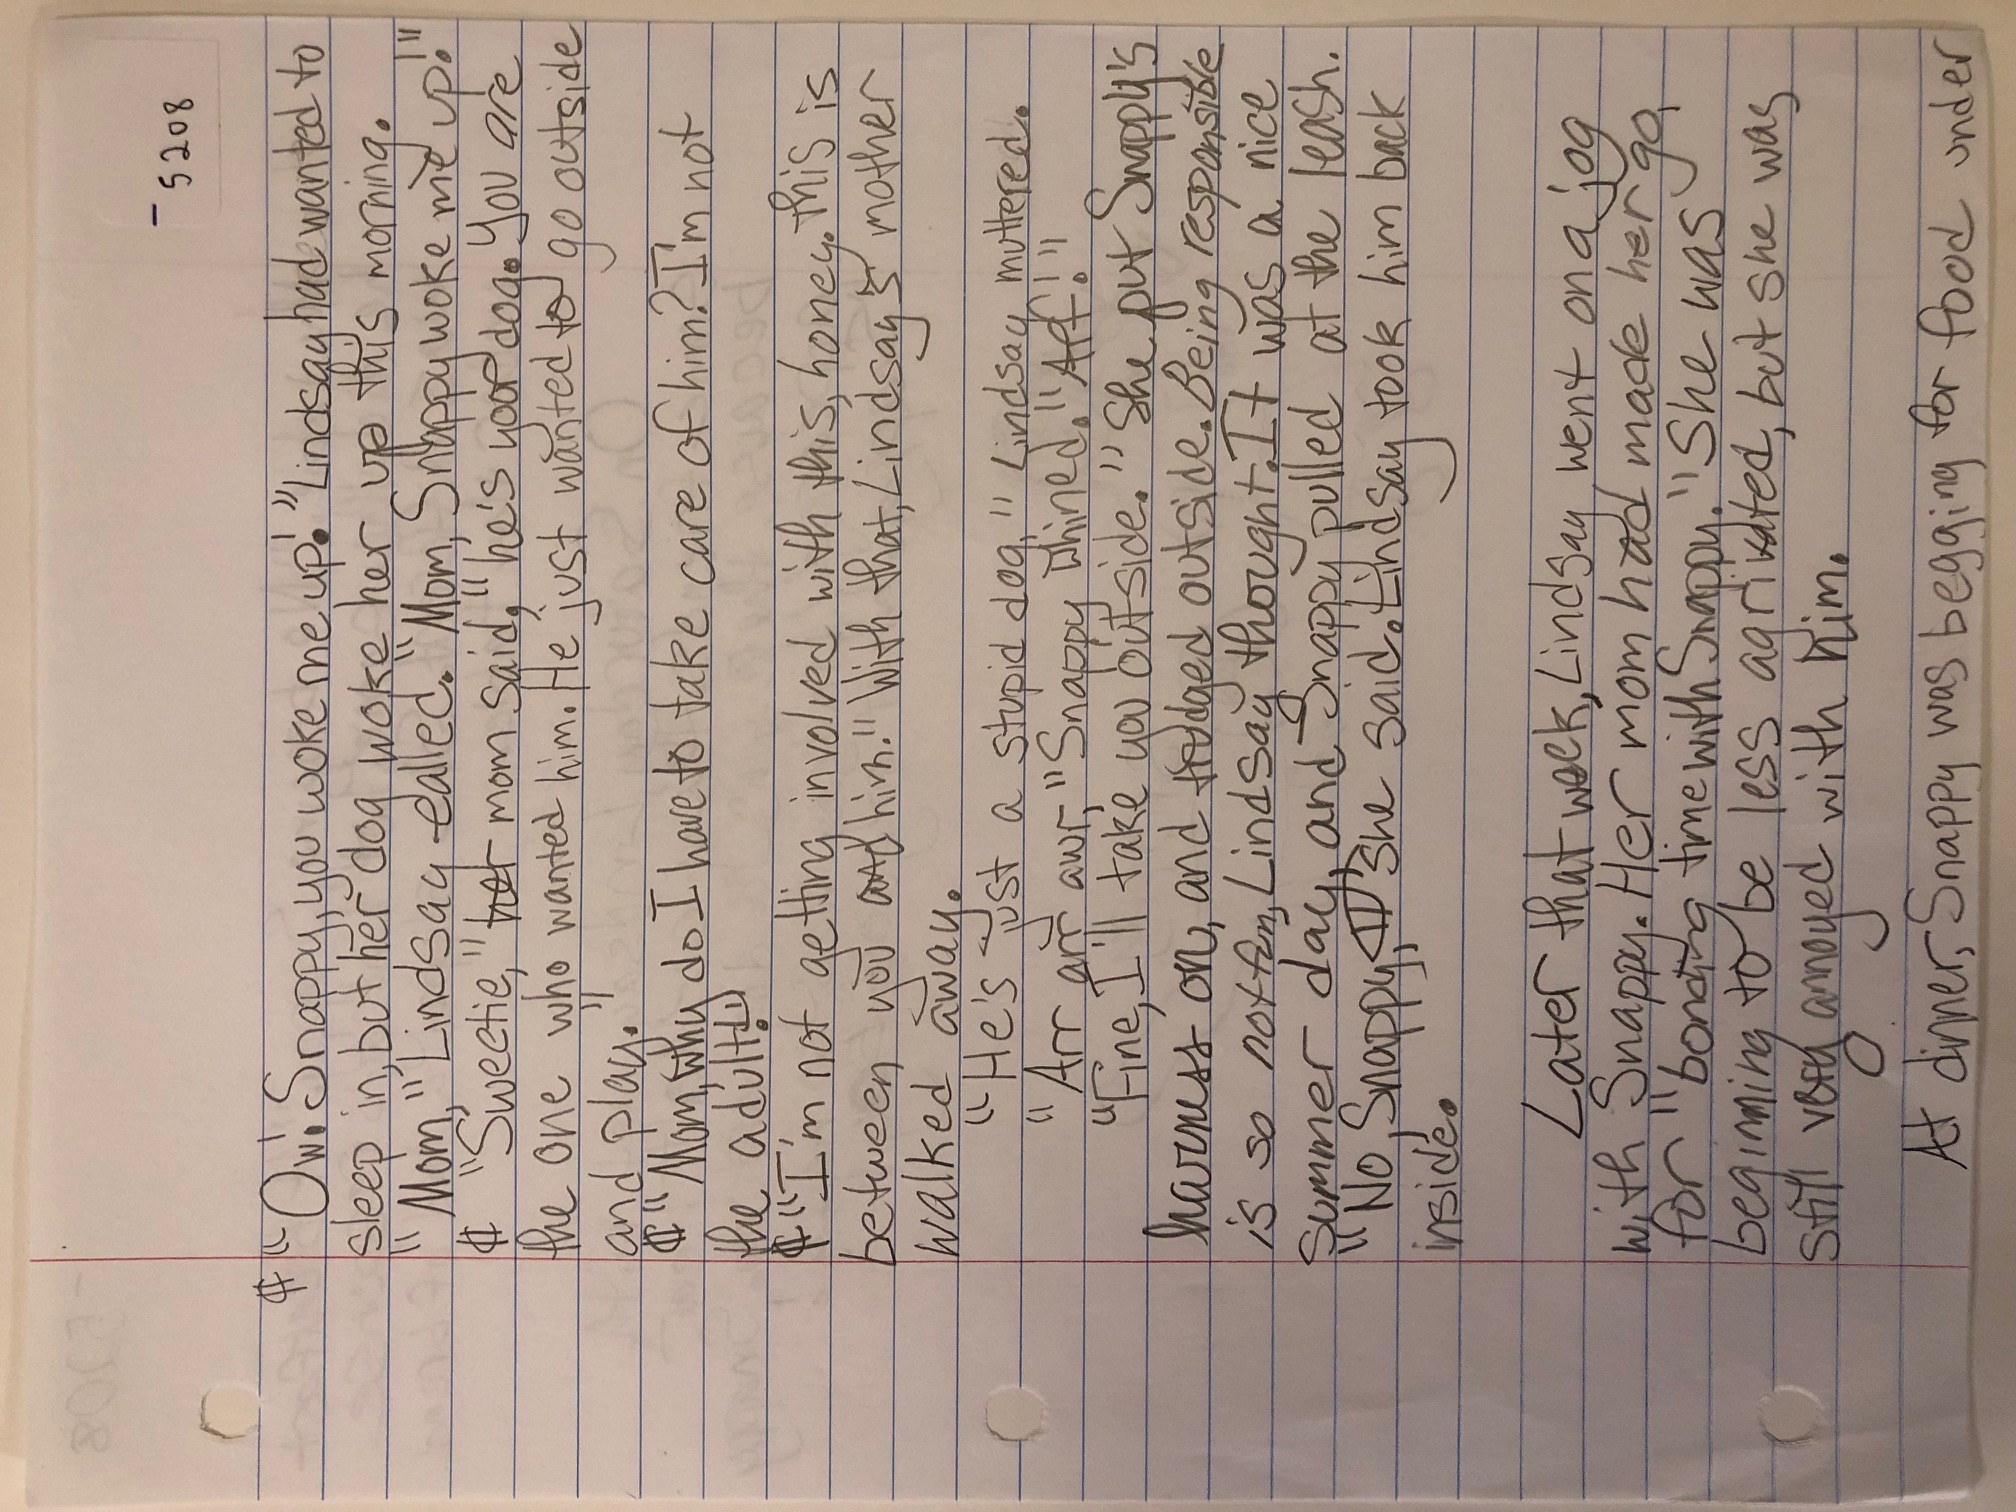 - 5208
¶ "Ow! Snappy, you woke me up!" Lindsay had wanted to
sleep in, but her dog woke her up this morning.
"Mom," Lindsay called. "Mom, Snappy woke me up!"
¶ "Sweetie," her mom said, "he's your dog. You are
the one who wanted him. He just wanted to go outside
and play."
¶ "Mom, why do I have to take care of him? I'm not
the adult!"
¶ "I'm not getting involved with this, honey. This is
between you and him." With that, Lindsay's mother
walked away.
"He's just a stupid dog," Lindsay muttered.
"Arr arr awr," Snappy whined. "Aff!"
"Fine, I'll take you outside." She put Snappy's
harness on, and trudged outside. Being responsible
is so not fun, Lindsay thought. It was a nice
summer day, and Snappy pulled at the leash.
"No, Snappy," she said. Lindsay took him back
inside.
Later that week, Lindsay went on a jog
with Snappy. Her mom had made her go,
for "bonding time with Snappy." She was
beginning to be less agrivated, but she was
still very annoyed with him.
At dinner, Snappy was begging for food under